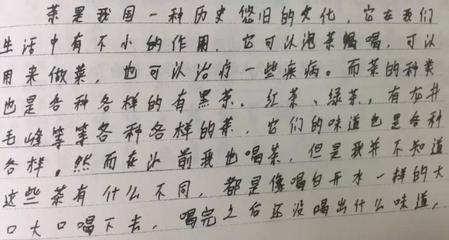 茶是我国一种历史悠久的文化，它在我们
生活中有不小的作用，它可以泡茶喝，可以
用来做菜，也可以治疗一些疾病。而茶的种类
也是各种各样的有黑茶、红茶、绿茶，有龙井
毛峰等等各种各样的茶，它们的味道也是各种
各样。然而在以前我也喝茶，但是我并不知道
这些茶有什么不同，都是像喝白开水一样的大
口大口喝下去，喝完之后还没喝出什么味道，